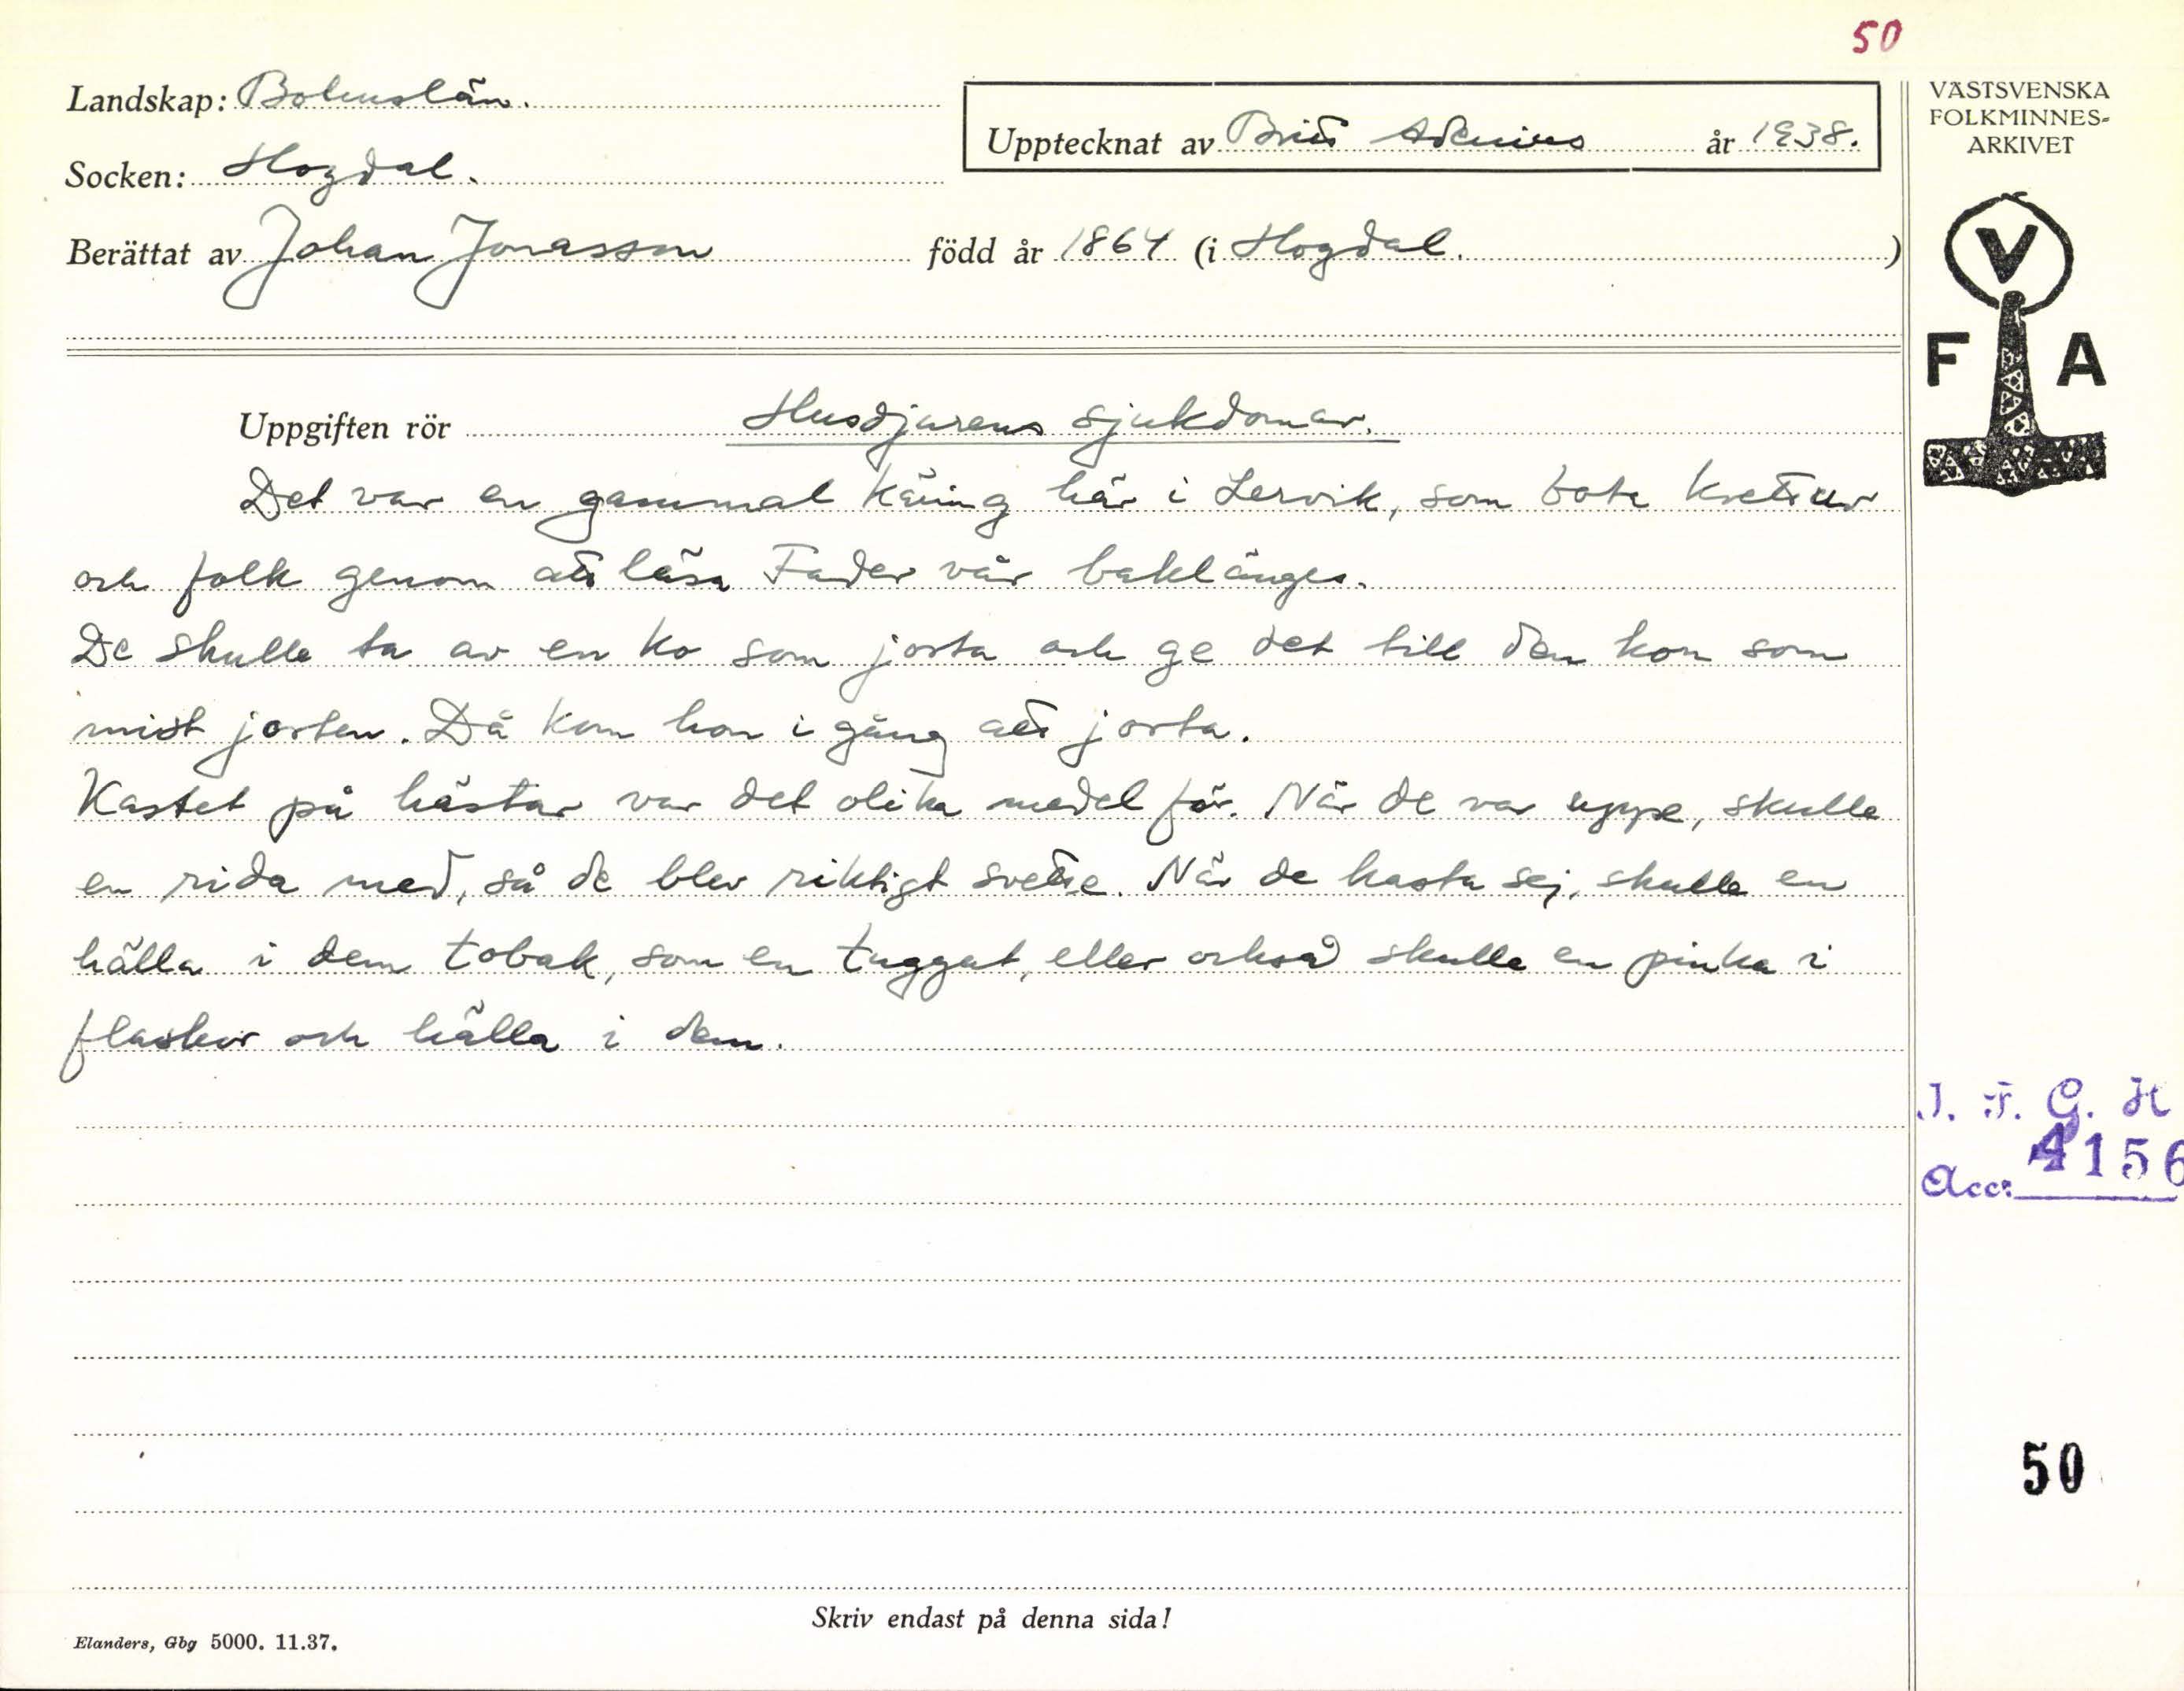 50
Landskap: Bohuslän.
Upptecknat av Britt Adenius år 1938.
VÄSTSVENSKA
FOLKMINNES-
ARKIVET
Socken: Hogdal.
Berättat av Johan Jonasson född år 1864 (i Hogdal.)
V
F A
Uppgiften rör Husdjurens sjukdomar.
Det var en gammal käring här i Lervik, som bota kretur
och folk genom att läsa Fader vår baklänges.
De skulle ta av en ko som jorta och ge det till den kon som
mist jorten. Då kom hon i gång att jorta.
Kastet på hästar var det olika medel för. När de var uppe, skulle
en rida med, så de blev riktigt svette. När de kasta sej, skulle en
hälla i dem tobak, som en tuggat, eller också skulle en pinka i
flaskor och hälla i dem.
I. F. G. H
Acc: 4156
50
Skriv endast på denna sida!
Elanders, Gbg 5000. 11.37.